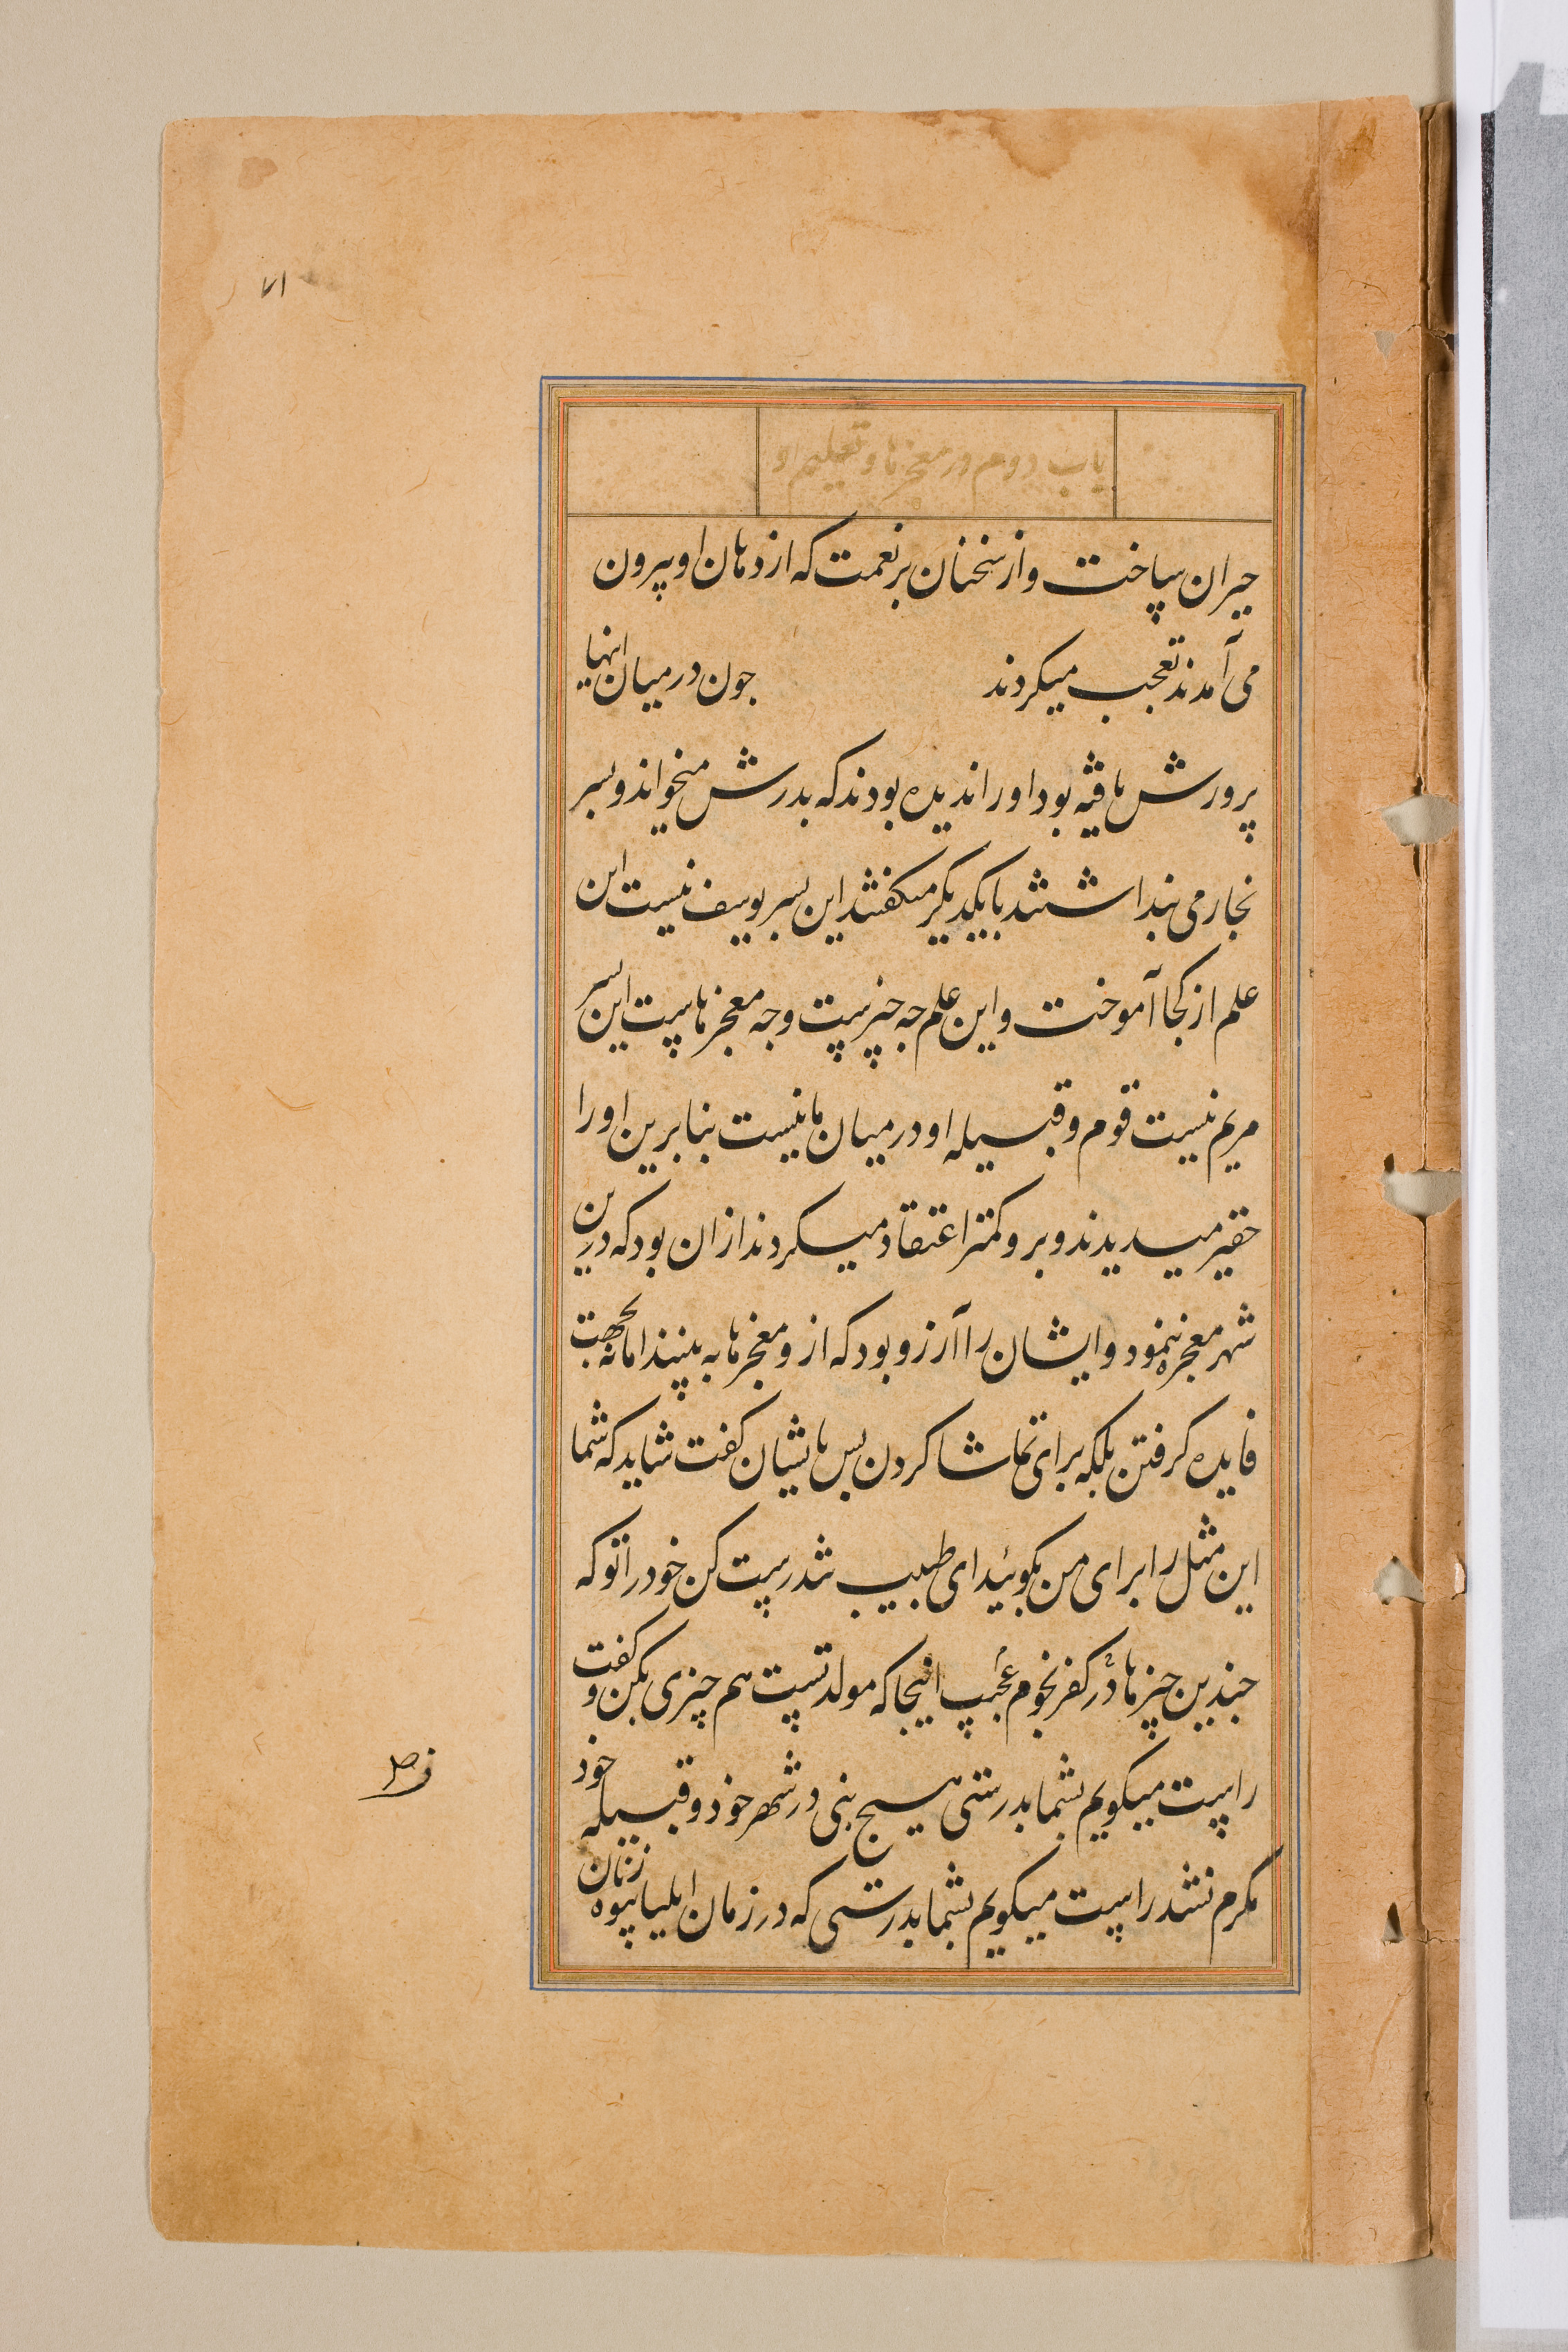 ۷۱
باب دوم در معجزها و تعلیم او
حیران ساخت و از سخنان بر نعمت که از دهان او بیرون
می آمدند تعجب میکردند جون در میان اینها
پرورش یافته بود او را ندیده بودند که بدرش میخواند و پسر
نجار می بنداشتند با یکدیگر میکفتند این پسر یوسف نیست این
علم از کجا آموخت و این علم جه چیز ست و جه معجزهاست این پسر
مریم نیست قوم و قبیله او در میان ما نیست بنابرین او را
حقیر میدیدند و برو کمتر اعتقاد میکردند از ان بود که درین
شهر معجزه ننمود و ایشان را آرزو بود که ازو معجزها به بینند اما نه بجهت
فایده کرفتن بلکه برای تماشا کردن بس بایشان کفت شاید که شما
این مثل را برای من بکوئید ای طبیب تندرست کن خود را تو که
جندین چیزها در کفرنحوم عجب اینجا که مولد تست هم چیزی بکن و کفت
راست میکویم بشما بدرستی هیج نبی در شهر خود و قبیله خود
مکرم نشد راست میکویم بشما بدرستی که در زمان ایلیا بیوه زنان